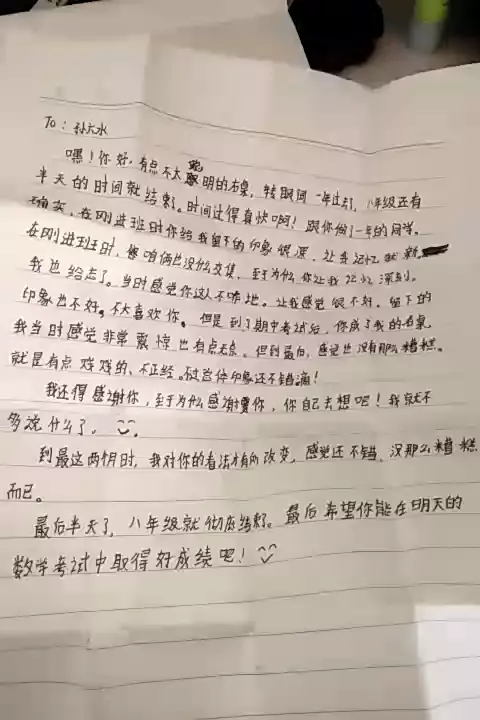 To：孙大水
嘿！你好，有点不太聪明的右桌，转眼间一年过去了，八年级还有
半天的时间就结束。时间过得真快啊！跟你做了一年的同学。
在刚进班时你给我留下的印象很深，让我记忆犹新。
在刚进班时，咱俩也没什么交集，至于为什么你让我记忆深刻，
我也给忘了。当时感觉你这人不咋地。让我感觉很不好，留下的
印象也不好。不太喜欢你。但是到了期中考试后，你成了我的右桌，
我当时感觉非常震惊也有点无奈。但到最后，感觉也没有那么糟糕。
就是有点戏戏的、不正经。不过总体印象还不错滴！
我还得感谢你，至于为什么感谢你，你自己去想吧！我就不
多说什么了。
到最这两个月时，我对你的看法才有向改变，感觉还不错，没那么糟糕
而已。
最后半天了，八年级就彻底结束了。最后希望你能在明天的
数学考试中取得好成绩吧！